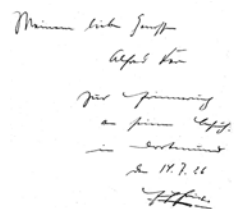 Meinem lieben
Alfred Kerr
zur Erinnerung
an seinen Besuch
in Dortmund
den 14.7.26